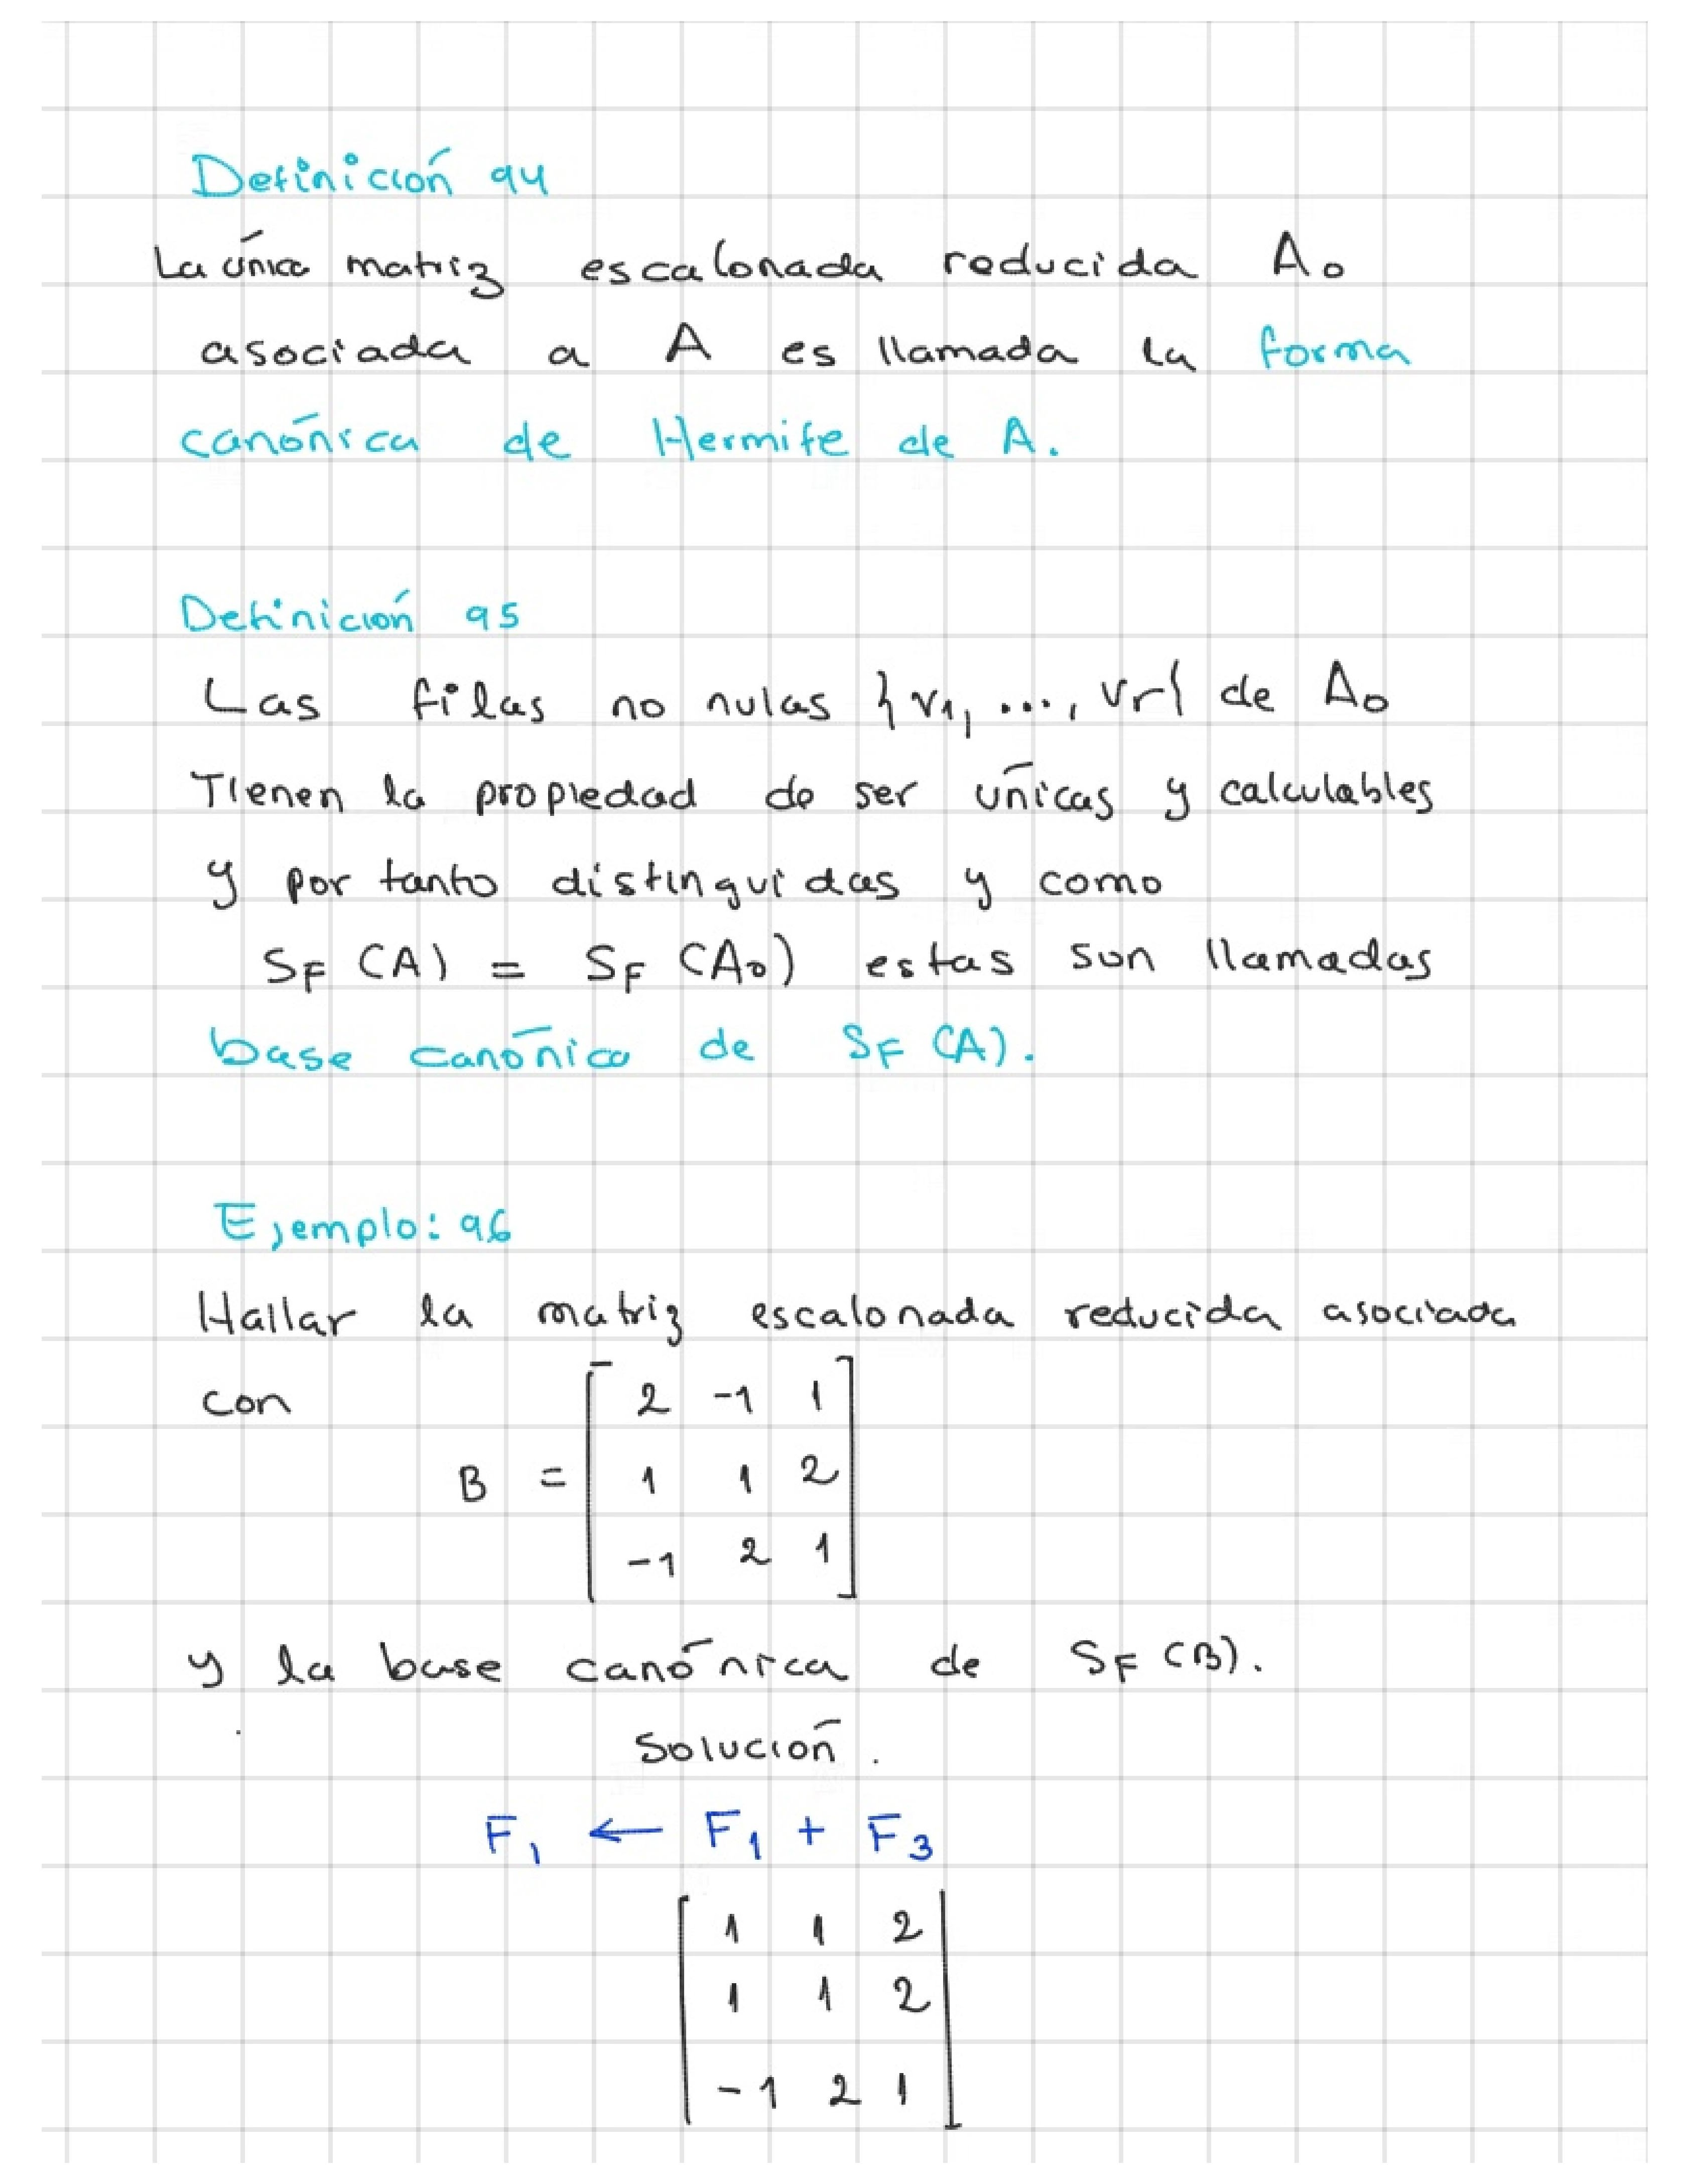 Definición 94
La única matriz escalonada reducida A₀
asociada a A es llamada la forma
canónica de Hermite de A.
Definición 95
Las filas no nulas {v₁, ..., vr} de A₀
Tienen la propiedad de ser únicas y calculables
y por tanto distinguidas y como
S_F (A) = S_F (A₀) estas son llamadas
base canónica de S_F (A).
Ejemplo: 96
Hallar la matriz escalonada reducida asociada
con
B = [ 2 -1 1
1 1 2
-1 2 1 ]
y la base canónica de S_F (B).
Solución.
F₁ ← F₁ + F₃
[ 1 1 2
1 1 2
-1 2 1 ]